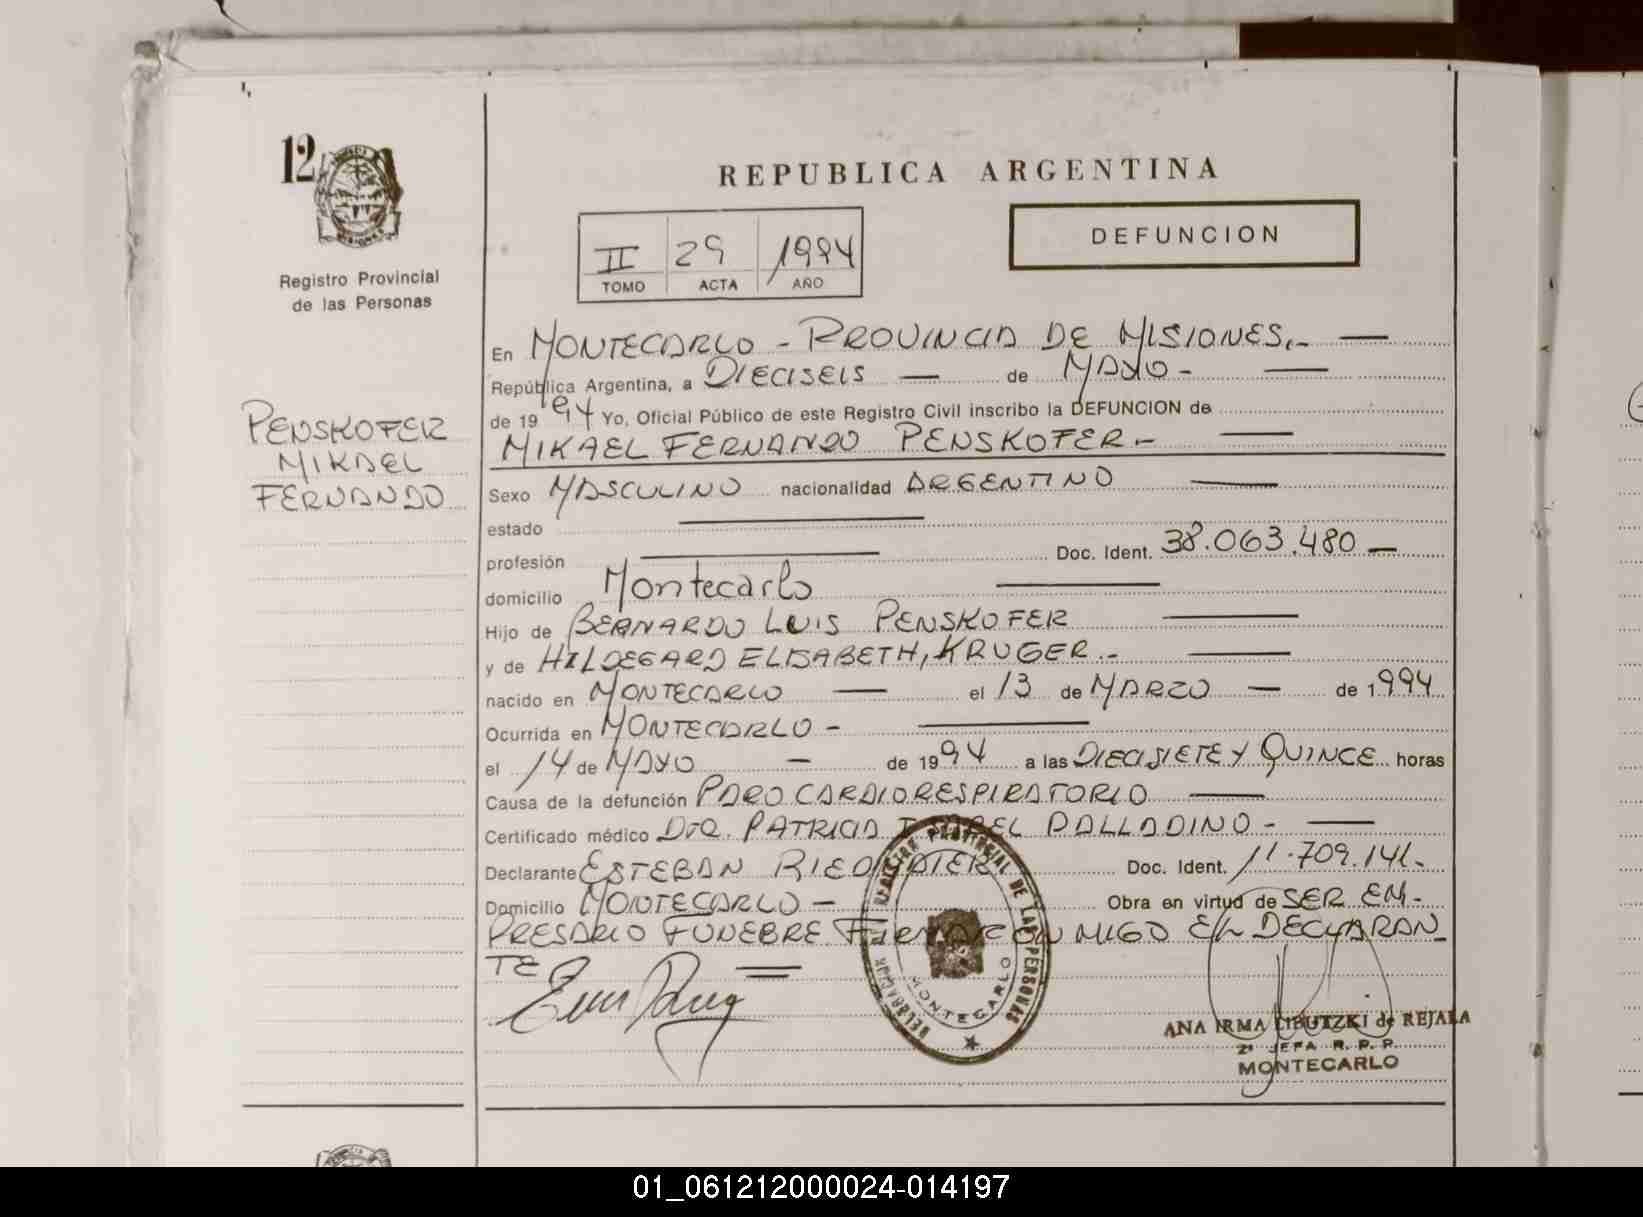 12
Registro Provincial
de las Personas
PENSKOFER
MIKAEL
FERNANDO
REPUBLICA ARGENTINA
II 29 1994
TOMO ACTA AÑO
DEFUNCION
En MONTECARLO - PROVINCIA DE MISIONES.-
República Argentina, a DIECISEIS de MAYO -
de 1994 Yo, Oficial Público de este Registro Civil inscribo la DEFUNCION de
MIKAEL FERNANDO PENSKOFER.-
Sexo MASCULINO nacionalidad ARGENTINO
estado
profesión Doc. Ident. 38.063.480 -
domicilio Montecarlo
Hijo de BERNARDO LUIS PENSKOFER
y de HILDEGARD ELISABETH, KRUGER.-
nacido en MONTECARLO el 13 de MARZO de 1994
Ocurrida en MONTECARLO -
el 14 de MAYO de 1994 a las DIECISIETE Y QUINCE horas
Causa de la defunción PARO CARDIORESPIRATORIO
Certificado médico Dra. PATRICIA ISABEL PALLADINO -
Declarante ESTEBAN Doc. Ident. 11.709.141.-
Domicilio MONTECARLO - Obra en virtud de SER EM-
PRESARIO FUNEBRE FIRMA CONMIGO E/L DECLARAN
TE
DELEGACION REGISTRO PROVINCIAL DE LAS PERSONAS
MONTECARLO
ANA IRMA LIBUTZKI de REJALA
2ª JEFA R. P. P.
MONTECARLO
01_061212000024-014197